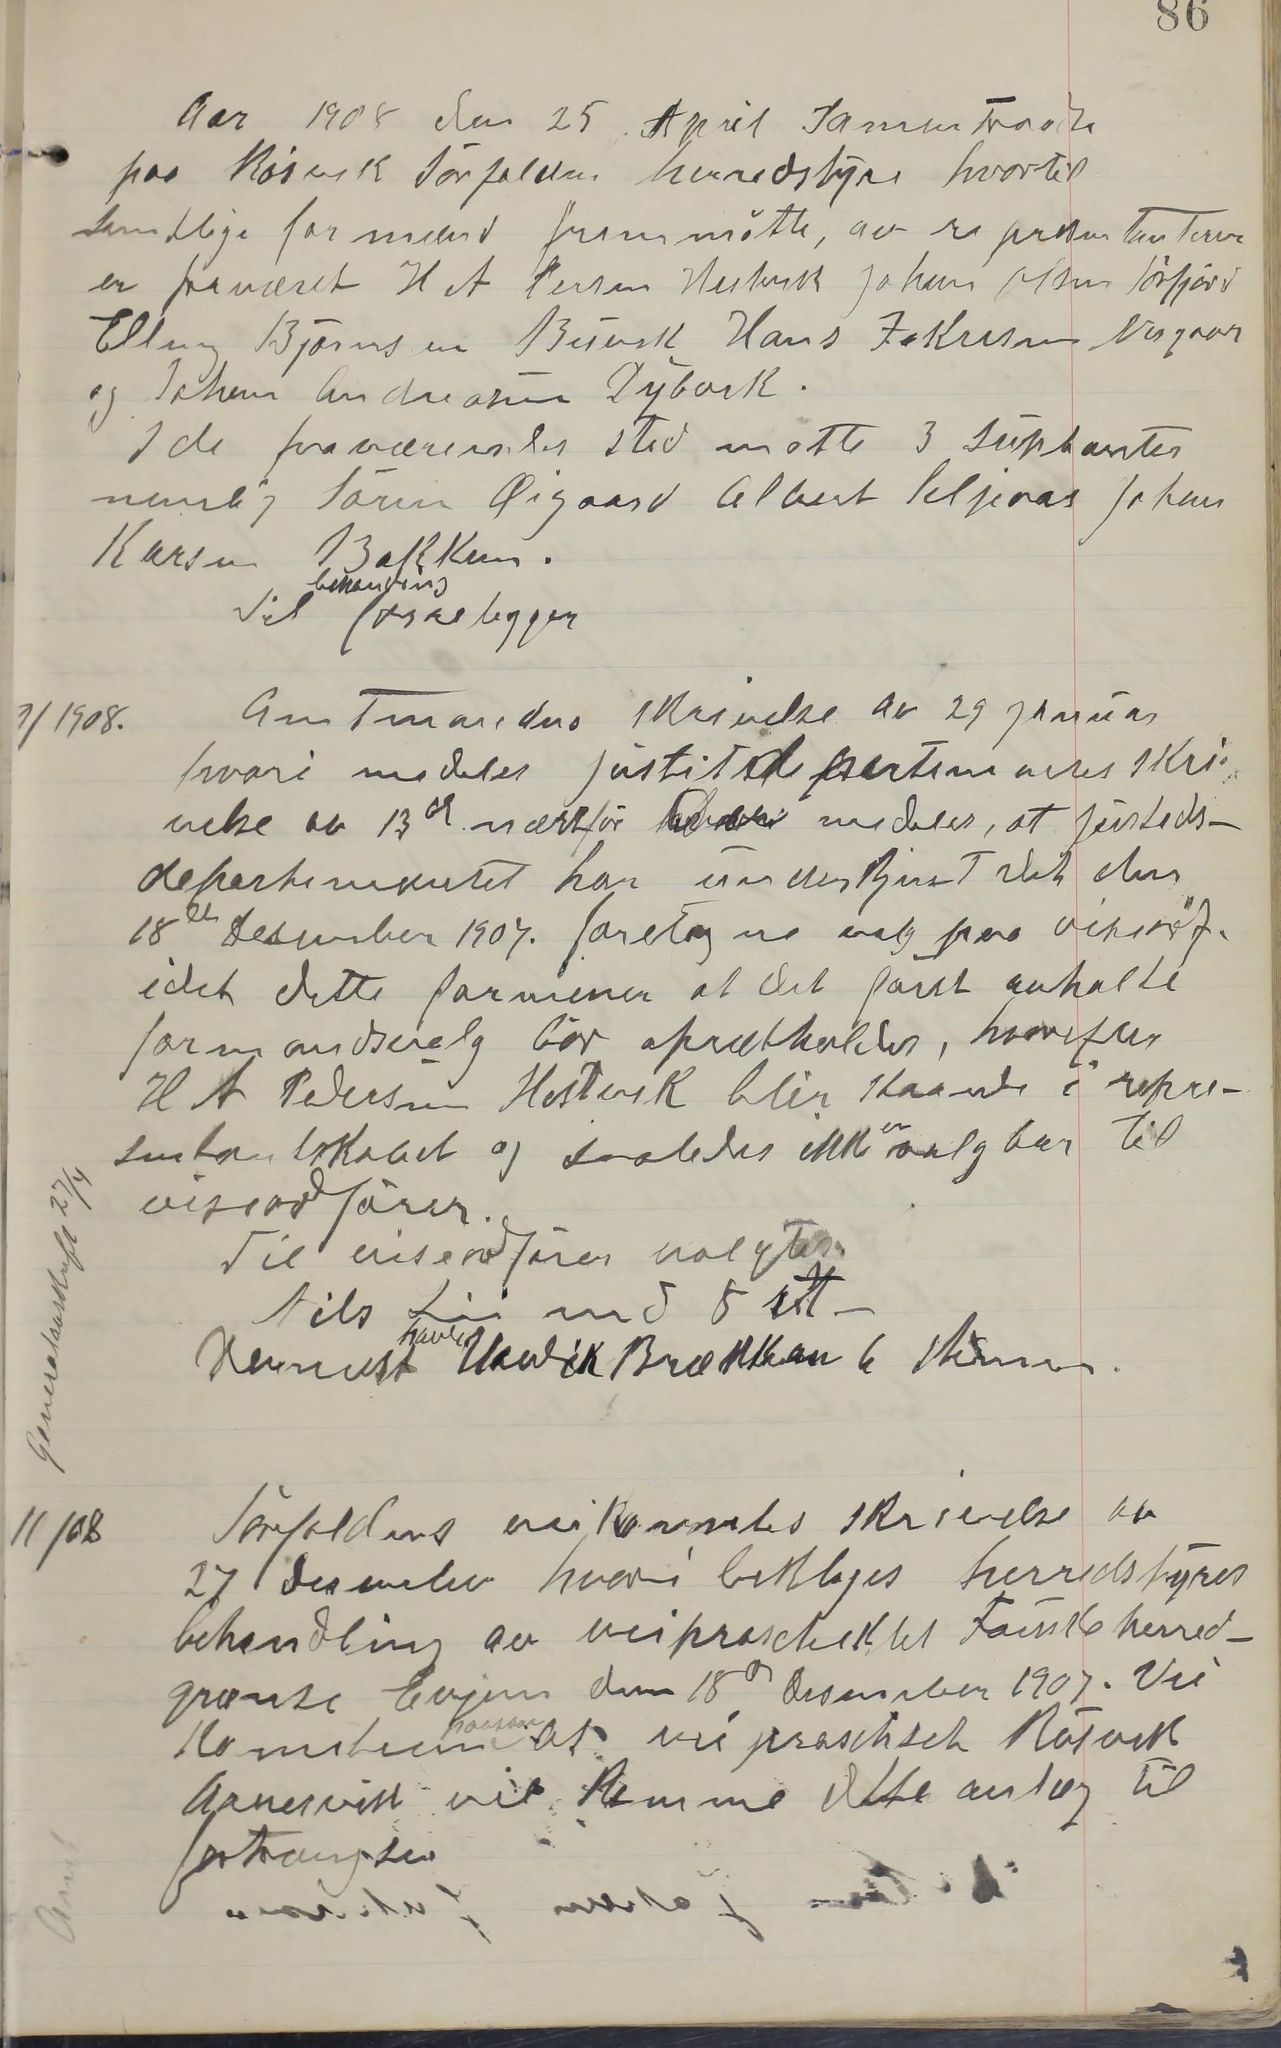 86
Aar 1908 den 25 April Samentraadte
paa Rösvik Sörfoldens herredstyre hvortil
samtlige formænd fremmötte, av representanterne
er fraværet H A Persen Hestvik Johan Olsen Sörfjord
Elling Björnsen Buvik Hans Zakrisen
og Johan Andreasen Dybvik.
I de fraværendes sted mötte 3 Suplanter
nemlig Sören Øigaard Albert Seljeaas Johan
Karsen Bakken.
behandling
Til foreligger
7/1908.
Amtmandens skrivelse av 29 januar
hvori medeles justitsdepartementes skri-
velse av 13de næstför medeles, at justeds-
departementet har underkjent det den
18de Desember 1907. foretagne valg paa viseordf.
idet dette formener at det först anholte
formandsvalg bör opretholdes, hvorefter
H A Pedersen Hestvik blir staaende i repre-
sentantskabet og saaledes ikke er valgbar til
viseordförer.
Til viseordförer valgtes
Nils Lii med 8 st
havde
Dernest Hendik Brækkan 6 stemmer.
Generalavskrift 27/4
11/08
Sörfoldens veikomites skrivelse av
27 Desember hvori beklages herredstyres
behandling av veiproschektet Fauske herred-
grænse Evjen den 18de Desember 1907. Vei
Komiteen at veiproschekt Rösvik
Aanesvik vil komme dette anlæg til
fortrængsel
Amt